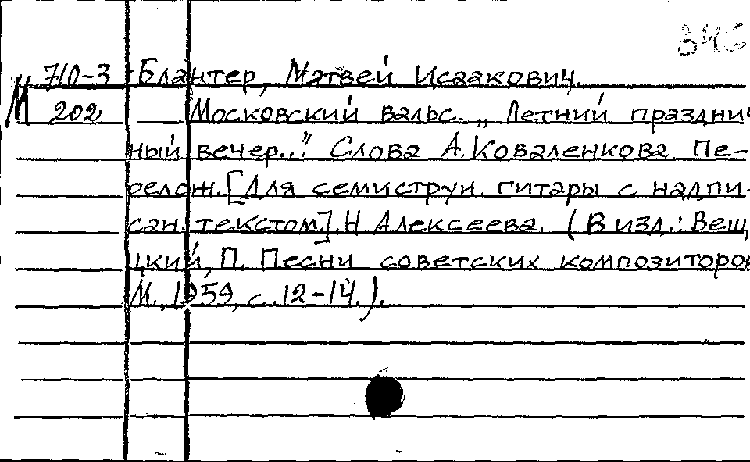 346
М 710-3 Блантер, Матвей Исаакович.
202 Московский вальс. „Летний праздни
ный вечер..." Слова А. Коваленкова Пе-
релож. [Для семиструн. гитары с надпи-
сан. текстом]. Н Алексеева. (В изд.: Вещ
цкий, П. Песни советских композиторов
М., 1959, с. 12-14.).